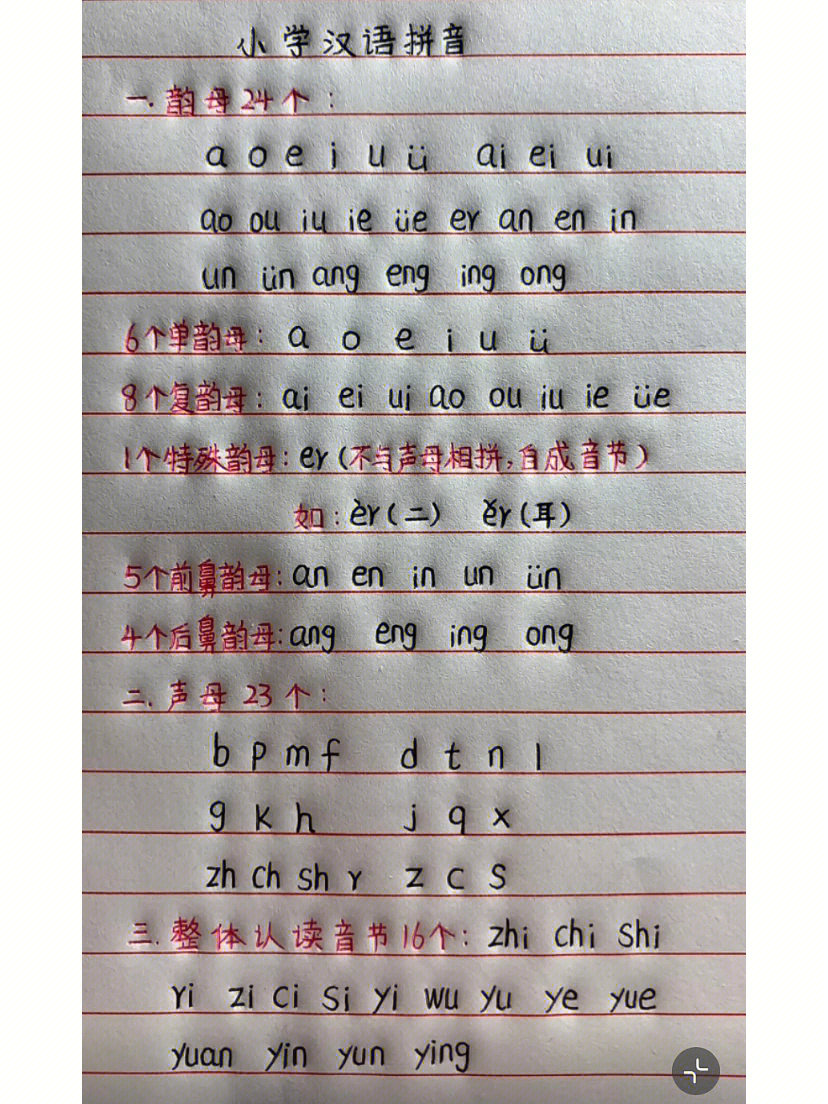 小学汉语拼音
一.韵母24个:
a o e i u ü ai ei ui
ao ou iu ie üe er an en in
un ün ang eng ing ong
6个单韵母: a o e i u ü
8个复韵母: ai ei ui ao ou iu ie üe
1个特殊韵母: er (不与声母相拼,自成音节)
如: èr (二) ěr (耳)
5个前鼻韵母: an en in un ün
4个后鼻韵母: ang eng ing ong
二.声母23个:
b p m f d t n l
g k h j q x
zh ch sh r z c s
三.整体认读音节16个: zhi chi shi
ri zi ci si yi wu yu ye yue
yuan yin yun ying